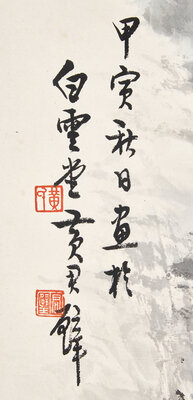 甲寅秋日画於
白雲堂黃君璧